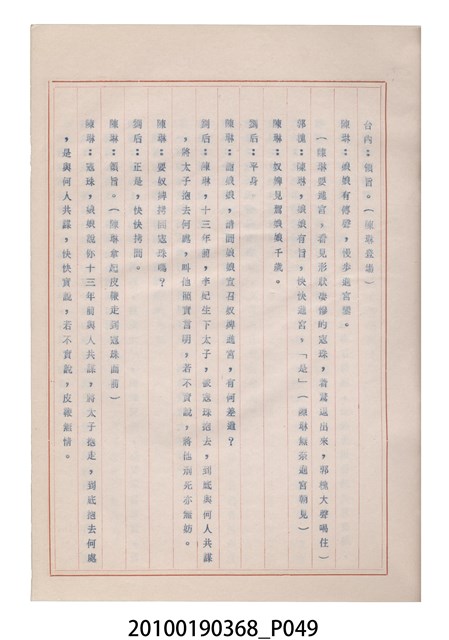 台內：領旨。(陳琳登場)
陳琳：娘娘有傳聲，慢步進宮廷。
(陳琳要進宮，看見形狀悽慘的寇珠，著驚退出來，郭槐大聲喝住)
郭槐：陳琳，娘娘有旨，快快進宮，「是」(陳琳無奈進宮朝見)
陳琳：奴婢見駕娘娘千歲。
劉后：平身
陳琳：謝娘娘，請問娘娘宣召奴婢進宮，有何差遣？
劉后：陳琳，十三年前，李妃生下太子，被寇珠抱去，到底與何人共謀
，將太子抱去何處，叫他照實言明，若不實說，將他刑死亦無妨。
陳琳：要奴婢拷問寇珠嗎？
劉后：正是，快快拷問。
陳琳：領旨。(陳琳拿起皮鞭走到寇珠面前)
陳琳：寇珠，娘娘說你十三年前與人共謀，將太子抱走，到底抱去何處
，是與何人共謀，快快實說，若不實說，皮鞭無情。
20100190368_P049